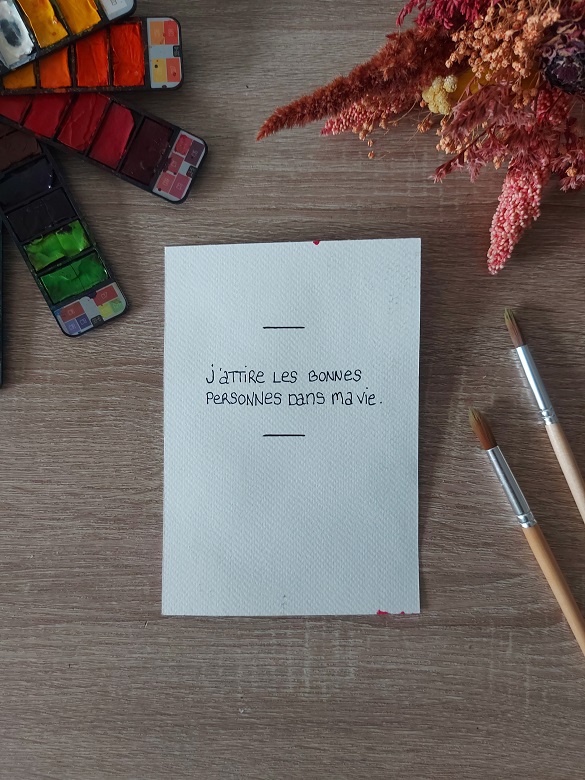 J'attire les bonnes
personnes dans ma vie.